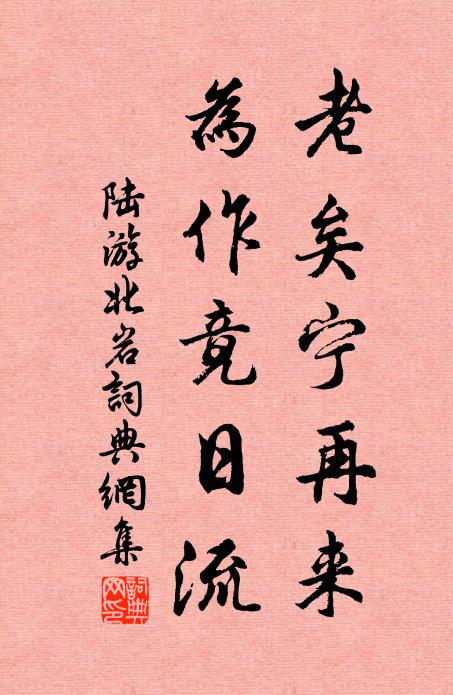 老矣宁再来
為作竟日流
陆游北岩詞典網集
詞典网印